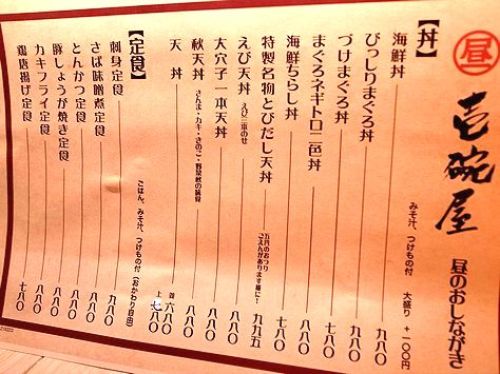 昼
壱碗屋
昼のおしながき
【丼】
みそ汁、つけもの付 大盛り +一〇〇円
海鮮丼 九八〇
びっしりまぐろ丼 九八〇
づけまぐろ丼 八八〇
まぐろネギトロ二色丼 八八〇
海鮮ちらし丼 七八〇
特製名物とびだし天丼 九九五
五円のおつり
ごえんがあります様に!
えび天丼 えび三本のせ 八八〇
大穴子一本天丼 八八〇
秋天丼 さんま・カキ・きのこ・野菜 八八〇
天丼 並 六八〇
上 七八〇
【定食】
ごはん、みそ汁、つけもの付(おかわり自由)
刺身定食 九八〇
さば味噌煮定食 八八〇
とんかつ定食 八八〇
豚しょうが焼き定食 八八〇
カキフライ定食 八八〇
鶏唐揚げ定食 七八〇